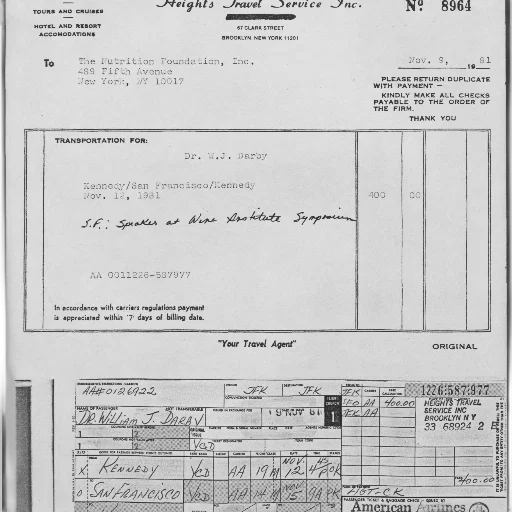 Heights Travel Service Inc.
Nº 8964
TOURS AND CRUISES
HOTEL AND RESORT
ACCOMODATIONS
67 CLARK STREET
BROOKLYN, NEW YORK 11201
To The Nutrition Foundation, Inc.
489 Fifth Avenue
New York, NY 10017
Nov. 9, 19 81
PLEASE RETURN DUPLICATE
WITH PAYMENT —
KINDLY MAKE ALL CHECKS
PAYABLE TO THE ORDER OF
THE FIRM.
THANK YOU
TRANSPORTATION FOR:
Dr. W.J. Darby
Kennedy/San Francisco/Kennedy 400 00
Nov. 12, 1981
S.F.: Speaker at Wine Institute Symposium
AA 0011226-587977
In accordance with carriers regulations payment
is appreciated within '7' days of billing date.
"Your Travel Agent"
ORIGINAL
AA#0126922
JFK JFK
1226:587:977
NAME OF PASSENGER NOT TRANSFERABLE
DR. WILLIAM J. DARBY
SFO AA 400.00
JFK AA
HEIGHTS TRAVEL
SERVICE INC
BROOKLYN N Y
33 68924 2
YCD
X KENNEDY YCD AA 19 M NOV. 12 OK
O SAN FRANCISCO YCD AA 14 M NOV 15 9A OK
400.00
American Airlines